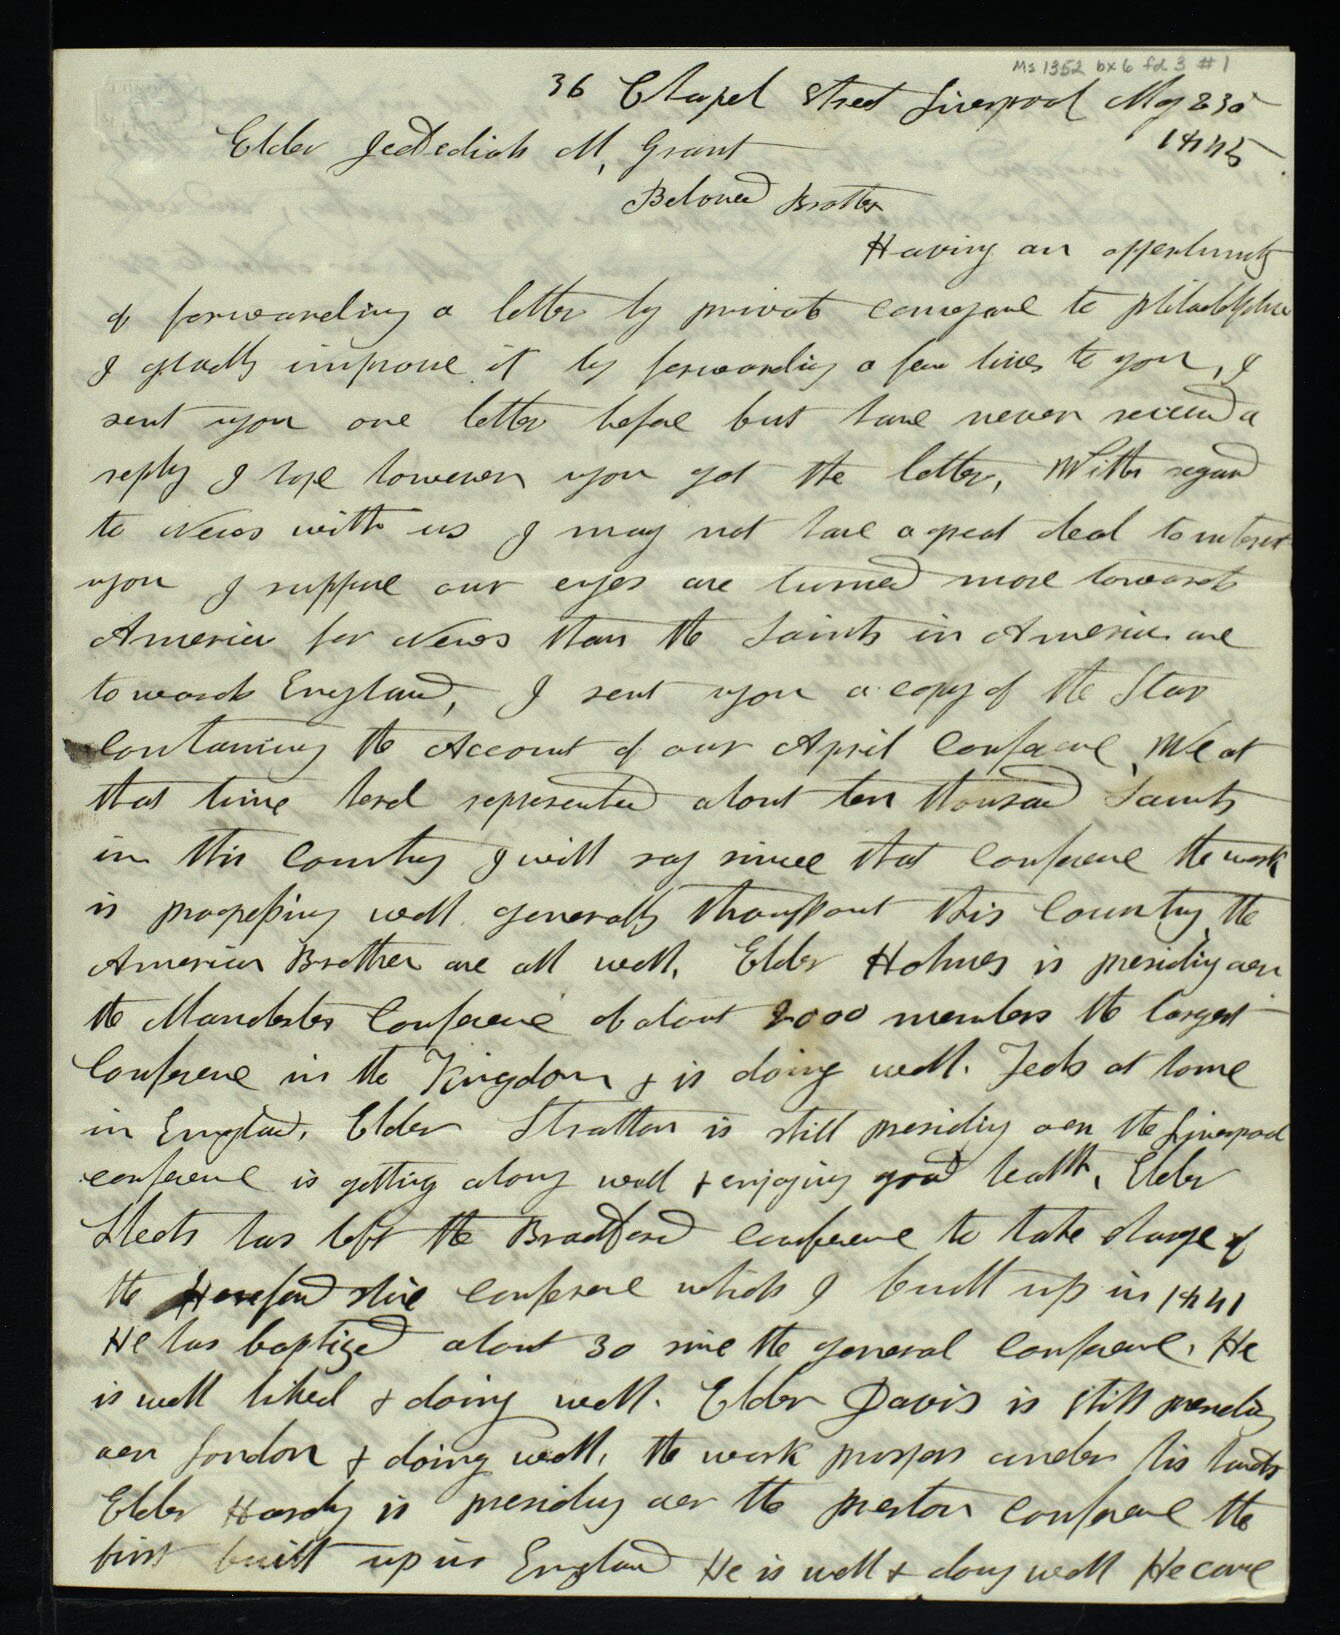 Ms 1352 bx 6 fd 3 #1
36 Chapel Street Liverpool May 230
1845
Elder Jedediah M, Grant
Beloved Brother
Having an opportunity
of forwarding a letter by private conveyance to Philadelphia
I gladly improve it by forwarding a few lines to you, I
sent you one letter before but have never received a
reply I hope however you got the letter, With regard
to News with us I may not have a great deal to interest
you I suppose our eyes are turned more towards
America for News than the Saints in America are
towards England, I sent you a copy of the Star
Containing the Account of our April Conference, We at
that time had represented about ten thousand Saints
in this Country I will say since that Conference the work
is progressing well generally throughout this Country the
American Brethren are all well. Elder Holmes is presiding over
the Manchester Conference of about 2000 members the largest
Conference in the Kingdom & is doing well. Feels at home
in England. Elder Stratton is still presiding over the Liverpool
conference is getting along well & enjoying good health, Elder
Sheets has left the Bradford Conference to take charge of
the Herefordshire Conference which I built up in 1841
He has baptized about 30 since the general Conference. He
is well liked & doing well. Elder Davis is still presiding
over London & doing well, the work prospers under his hands
Elder Hardy is presiding over the preston Conference the
first built up in England He is well & doing well He came